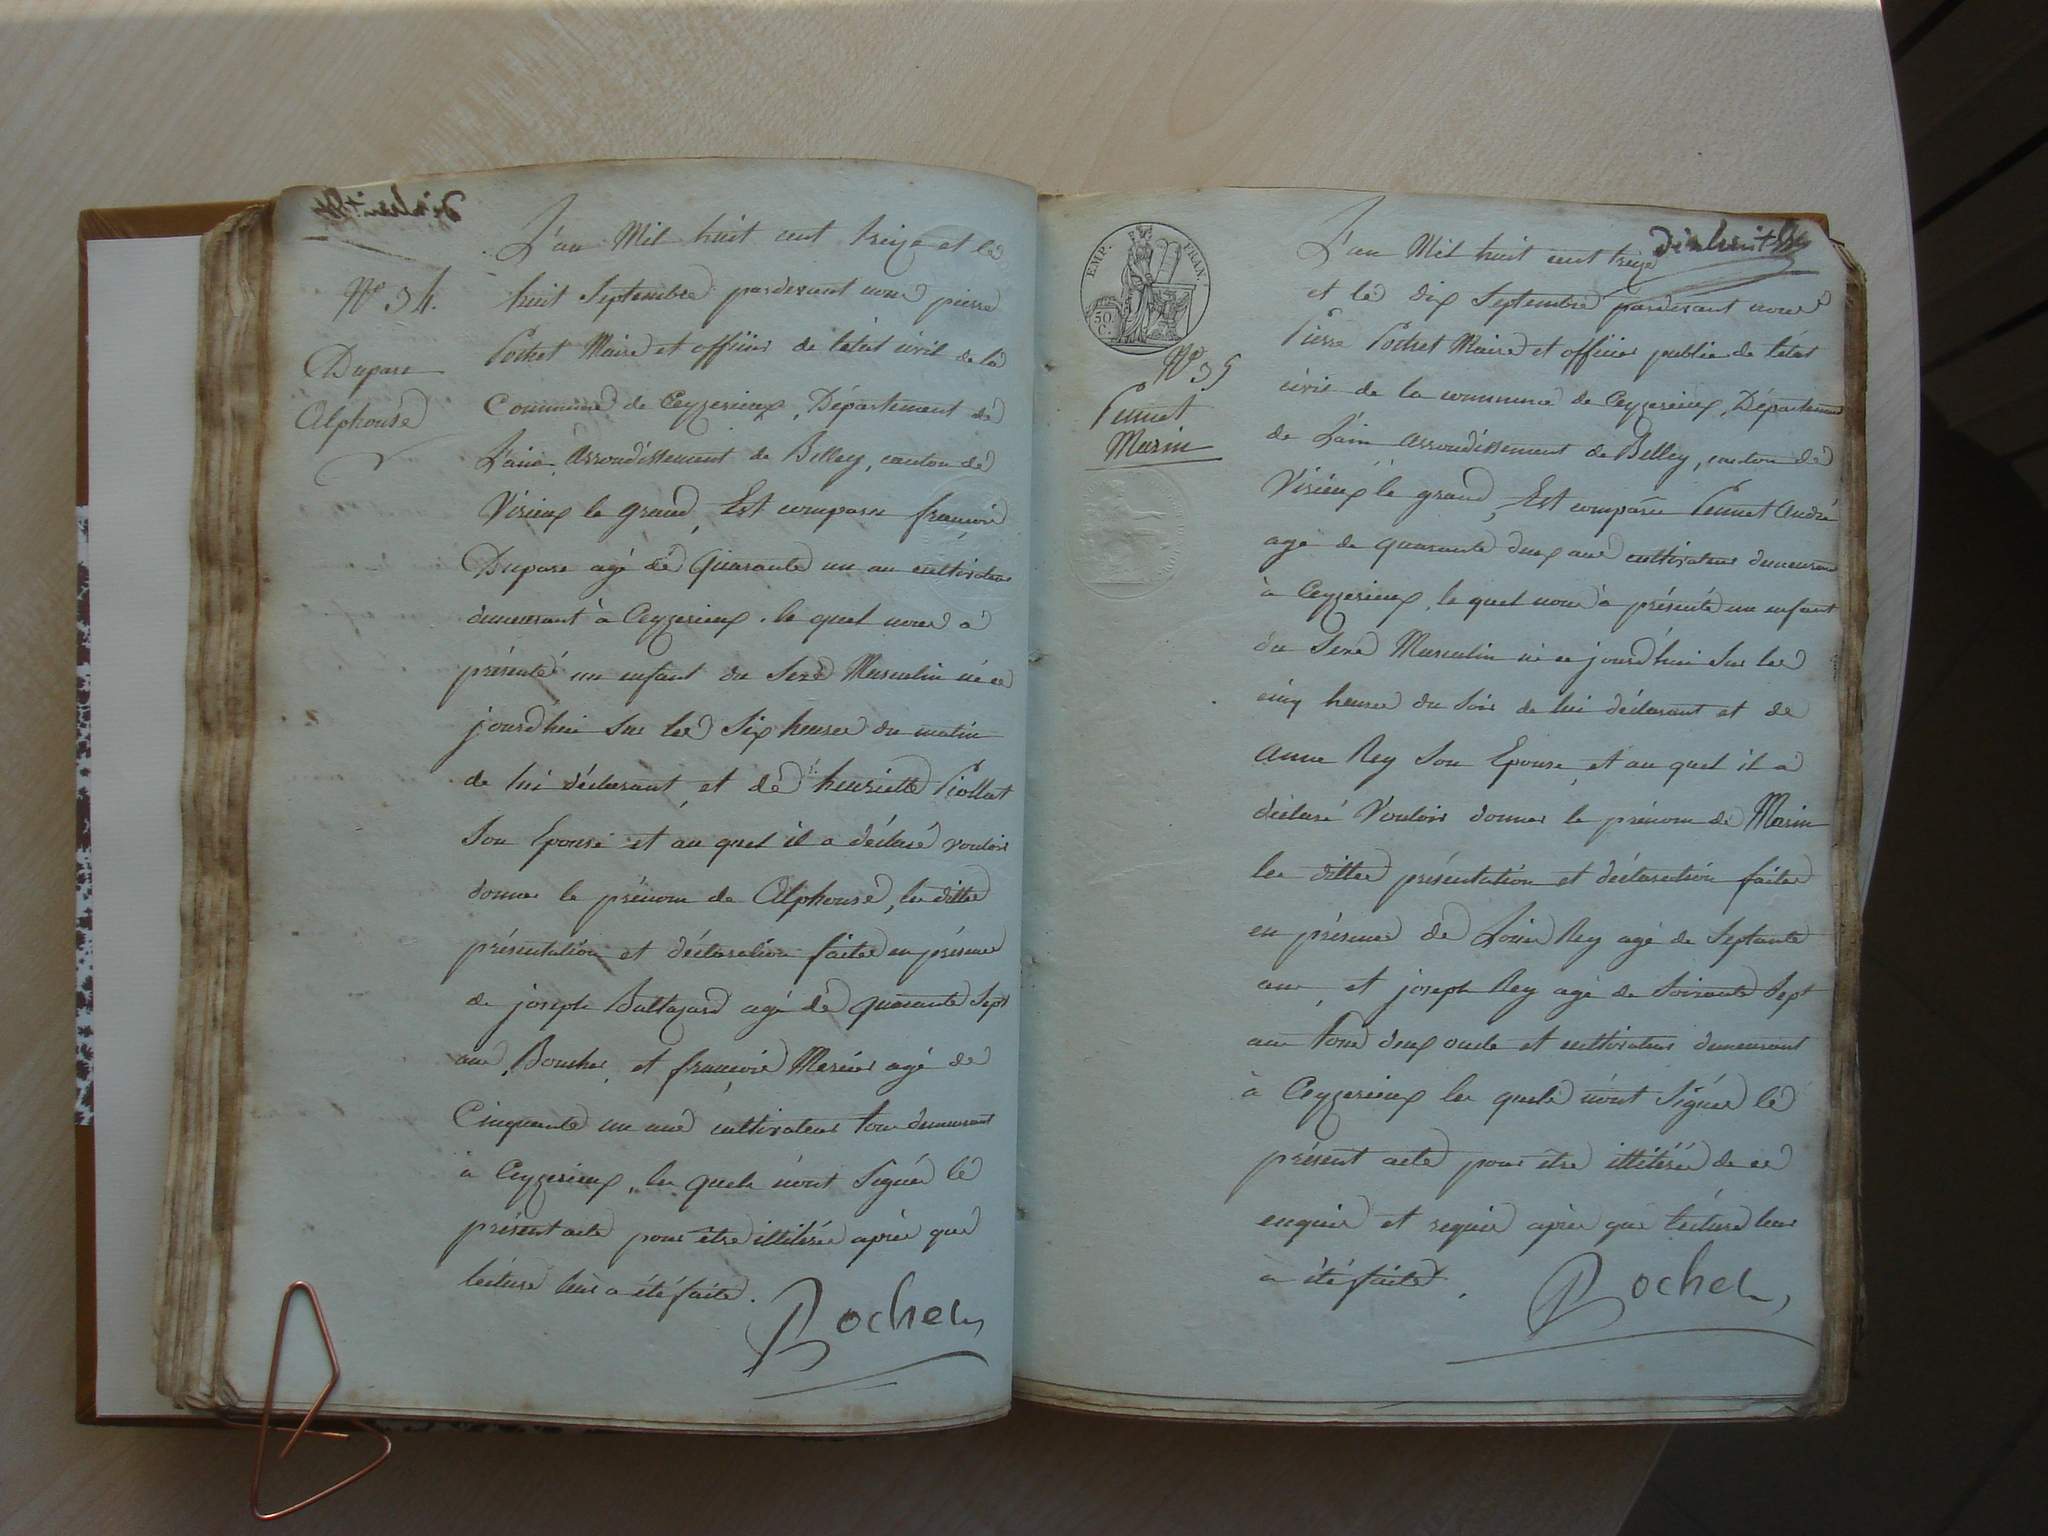 N° 34.
Dupare
Alphonse
L'an Mil huit cent treize et le
huit Septembre pardevant nous pierre
Pochet Maire et officier de l'état civil de la
Commune de Ceyzerieux, Département de
L'ain, Arrondissement de Belley, canton de
Virieux le grand, Est comparu françois
Dupare agé de Quarante un an cultivateur
demeurant à Ceyzerieux. le quel nous a
présenté un enfant du Sexe Masculin né ce
jourd'hui Sur les Six heures du matin
de lui déclarant, et de henriette Piollat
Son Epouse et au quel il a déclaré vouloir
donner le prénom de Alphonse, les dittes
présentation et déclaration faites en présence
de joseph Baltazard agé de quarante Sept
ans, Boucher, et françois Mercier agé de
Cinquante un ans cultivateur tous demeurant
à Ceyzerieux, les quels n'ont Signés le
présent acte pour être illitérés après que
lecture leur a été faite.
Pochet
EMP. FRAN.
50
C.
N° 35
Pennet
Marin
dixhuit
L'an Mil huit cent treize
et le dix Septembre pardevant nous
Pierre Pochet Maire et officier public de l'état
civil de la commune de Ceyzerieux, Département
de L'ain Arrondissement de Belley, canton de
Virieux le grand, Est comparu Pennet André
agé de quarante deux ans cultivateur demeurant
à Ceyzerieux, le quel nous a présenté un enfant
du Sexe Masculin né ce jourd'hui Sur les
cinq heures du Soir de lui déclarant et de
Anne Rey Son Epouse, et au quel il a
déclaré Vouloir donner le prénom de Marin
les dittes présentation et déclaration faites
en présence de Louis Rey agé de Septante
ans, et joseph Rey agé de Soixante Sept
ans tous deux oncle et cultivateur demeurant
à Ceyzerieux les quels n'ont Signés le
présent acte pour être illitérés de ce
enquis et requis après que lecture leur
a été faite.
Pochet